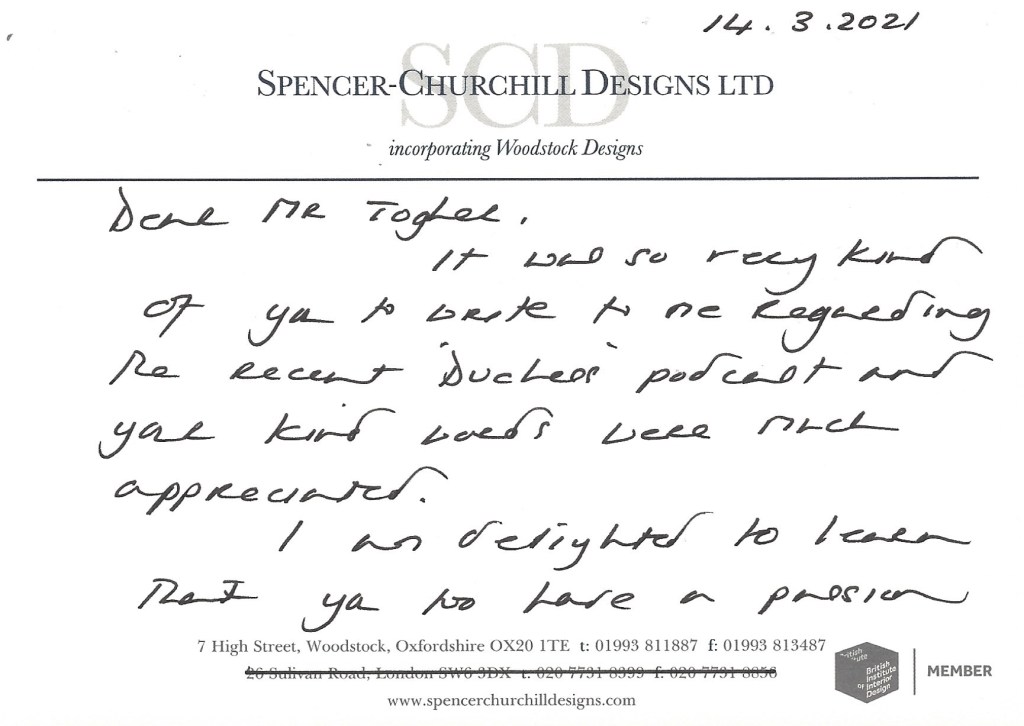 14.3.2021
SCD
SPENCER-CHURCHILL DESIGNS LTD
incorporating Woodstock Designs
Dear Mr Togher.
It was so very kind
of you to write to me regarding
the recent 'Duchess' podcast and
your kind words were much
appreciated.
I am delighted to learn
that you too have a passion
7 High Street, Woodstock, Oxfordshire OX20 1TE t: 01993 811887 f: 01993 813487
26 Sulivan Road, London SW6 3DX t: 020 7731 8399 f: 020 7731 8856
www.spencerchurchilldesigns.com
British Institute of Interior Design
MEMBER